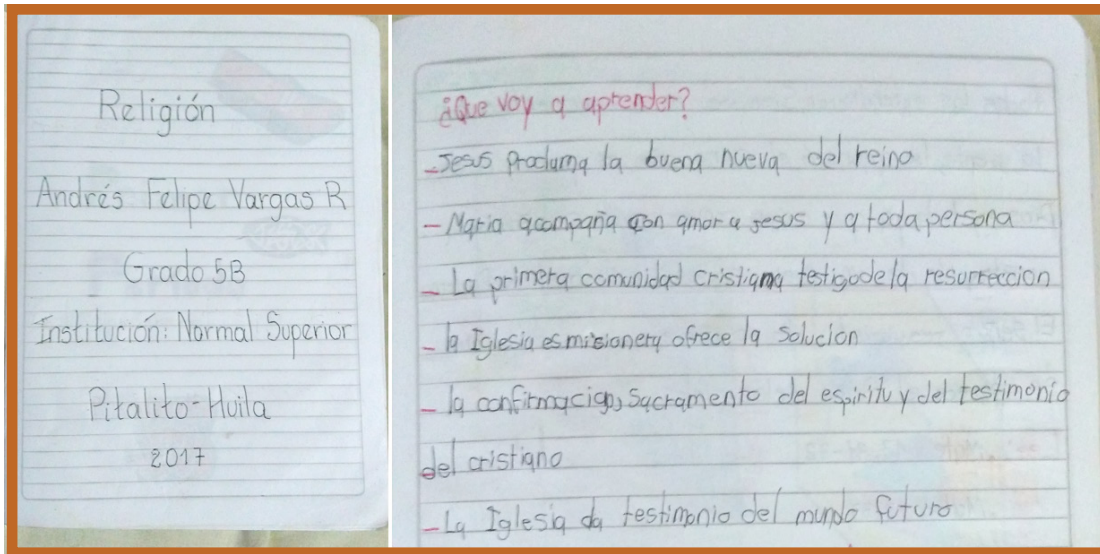 Religión
Andrés Felipe Vargas R
Grado 5B
Institución: Normal Superior
Pitalito-Huila
2017
¿Que voy a aprender?
-Jesus proclama la buena nueva del reino
- Maria acompaña con amor a jesus y a toda persona
- La primera comunidad cristiana testigo de la resurreccion
- la Iglesia es misionera y ofrece la solucion
- la confirmacion, Sacramento del espiritu y del testimonio
del cristiano
- La Iglesia da testimonio del mundo futuro